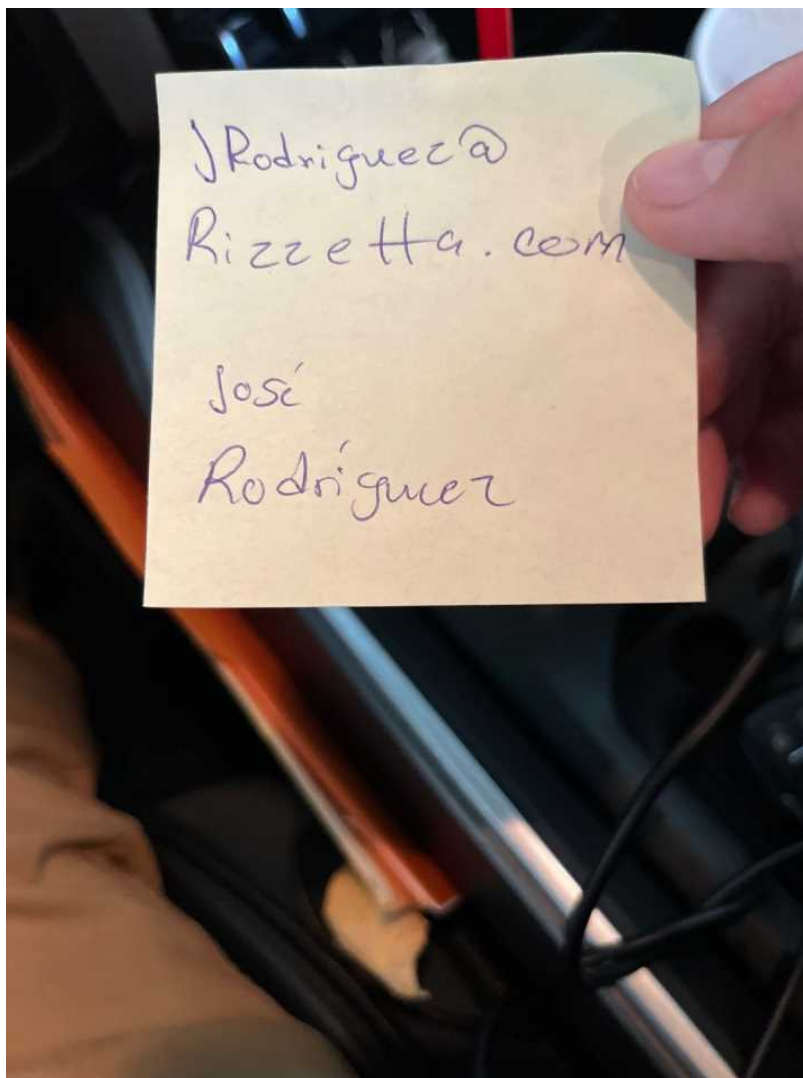 JRodriguez@
Rizzetta.com
José
Rodríguez